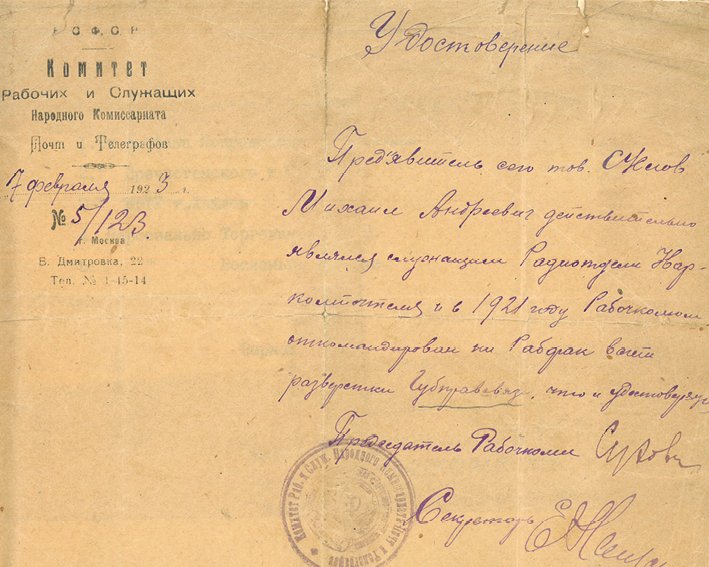 Р. С. Ф. С. Р.
Комитет
Рабочих и Служащих
Народного Комиссариата
Почт и Телеграфов
7 февраля 1923 г.
№ 5/123
г. Москва
Б. Дмитровка, 22
Тел. № 1-45-14
Удостоверение
Предъявитель сего тов. Суслов
Михаил Андреевич действительно
являлся служащим Радиотдела Нар-
компочтеля и в 1921 году Рабочкомом
откомандирован на Рабфак в счет
разверстки Губправсвяз, что и удостоверяется
Председатель Рабочкома
Секретарь
Комитет Раб. и Служ. Народного Комиссариата Почт и Телеграфов